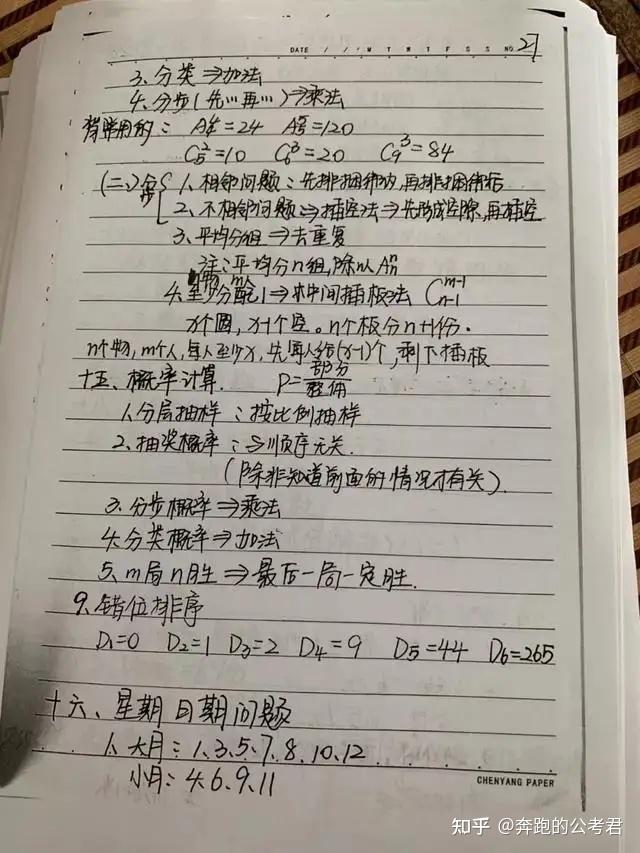 DATE / / M T W T F S S NO. 27
3、分类⇒加法
4、分步(先…再…)⇒乘法
背常用的: A⁴₄=24 A⁵₅=120
C₅²=10 C₆³=20 C₉³=84
(二)、 1、相邻问题:先排捆绑内,再排捆绑后
2、不相邻问题⇒插空法⇒先形成空隙,再插空
3、平均分组⇒去重复
注:平均分n组,除以Aⁿₙ
4、至少分配1⇒中间插板法 C^{m-1}_{n-1}
x个圆,x-1个空。n个板分n+1份.
n个物,m个人,每人至少x,先每人给(x-1)个,剩下插板
十五、概率计算. P=部分/整体
1、分层抽样:按比例抽样
2、抽奖概率:与顺序无关.
(除非知道前面的情况才有关).
3、分步概率⇒乘法
4、分类概率⇒加法
5、m局n胜⇒最后一局一定胜.
9、错位排序
D₁=0 D₂=1 D₃=2 D₄=9 D₅=44 D₆=265
十六、星期日期问题
1、大月:1、3、5、7、8、10、12
小月:4、6、9、11
CHENYANG PAPER
知乎 @奔跑的公考君